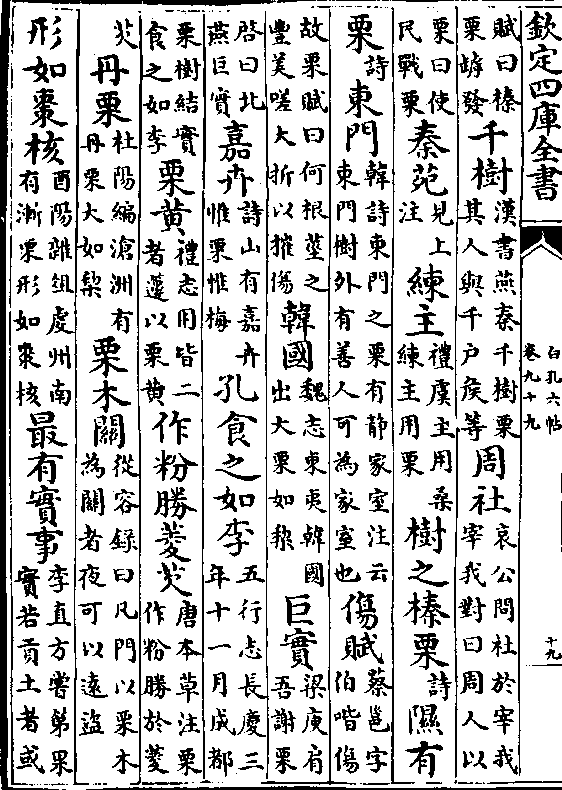 欽定四庫全書
賦曰榛栗罅發千樹漢書燕秦千樹栗其人與千户侯等周社哀公問社於宰我宰我對曰周人以
栗曰使民戰栗秦苑見上注練主禮虞主用桑練主用栗樹之榛栗詩隰有
栗詩東門韓詩東門之栗有静家室注云東門樹外有善人可為家室也傷賦蔡邕字伯喈傷
故栗賦曰何根莖之豐美嗟大折以摧傷韓國魏志東夷韓國出大栗如梨巨實梁庾肩吾謝栗
啓曰北燕巨實嘉卉詩山有嘉卉惟栗惟梅孔食之如李五行志長慶三年十一月成都
栗樹結實食之如李栗黄禮志用皆二者蘧以栗黄作粉勝菱芡唐本草注栗作粉勝於菱
芡丹栗杜陽編滄洲有丹栗大如梨栗木關從容録曰凡門以栗木為關者夜可以遠盜
形如棗核酉陽雜俎虔州南有漸栗形如棗核最有實事李直方嘗第果實若貢士者或
白孔六帖
卷九十九
十九